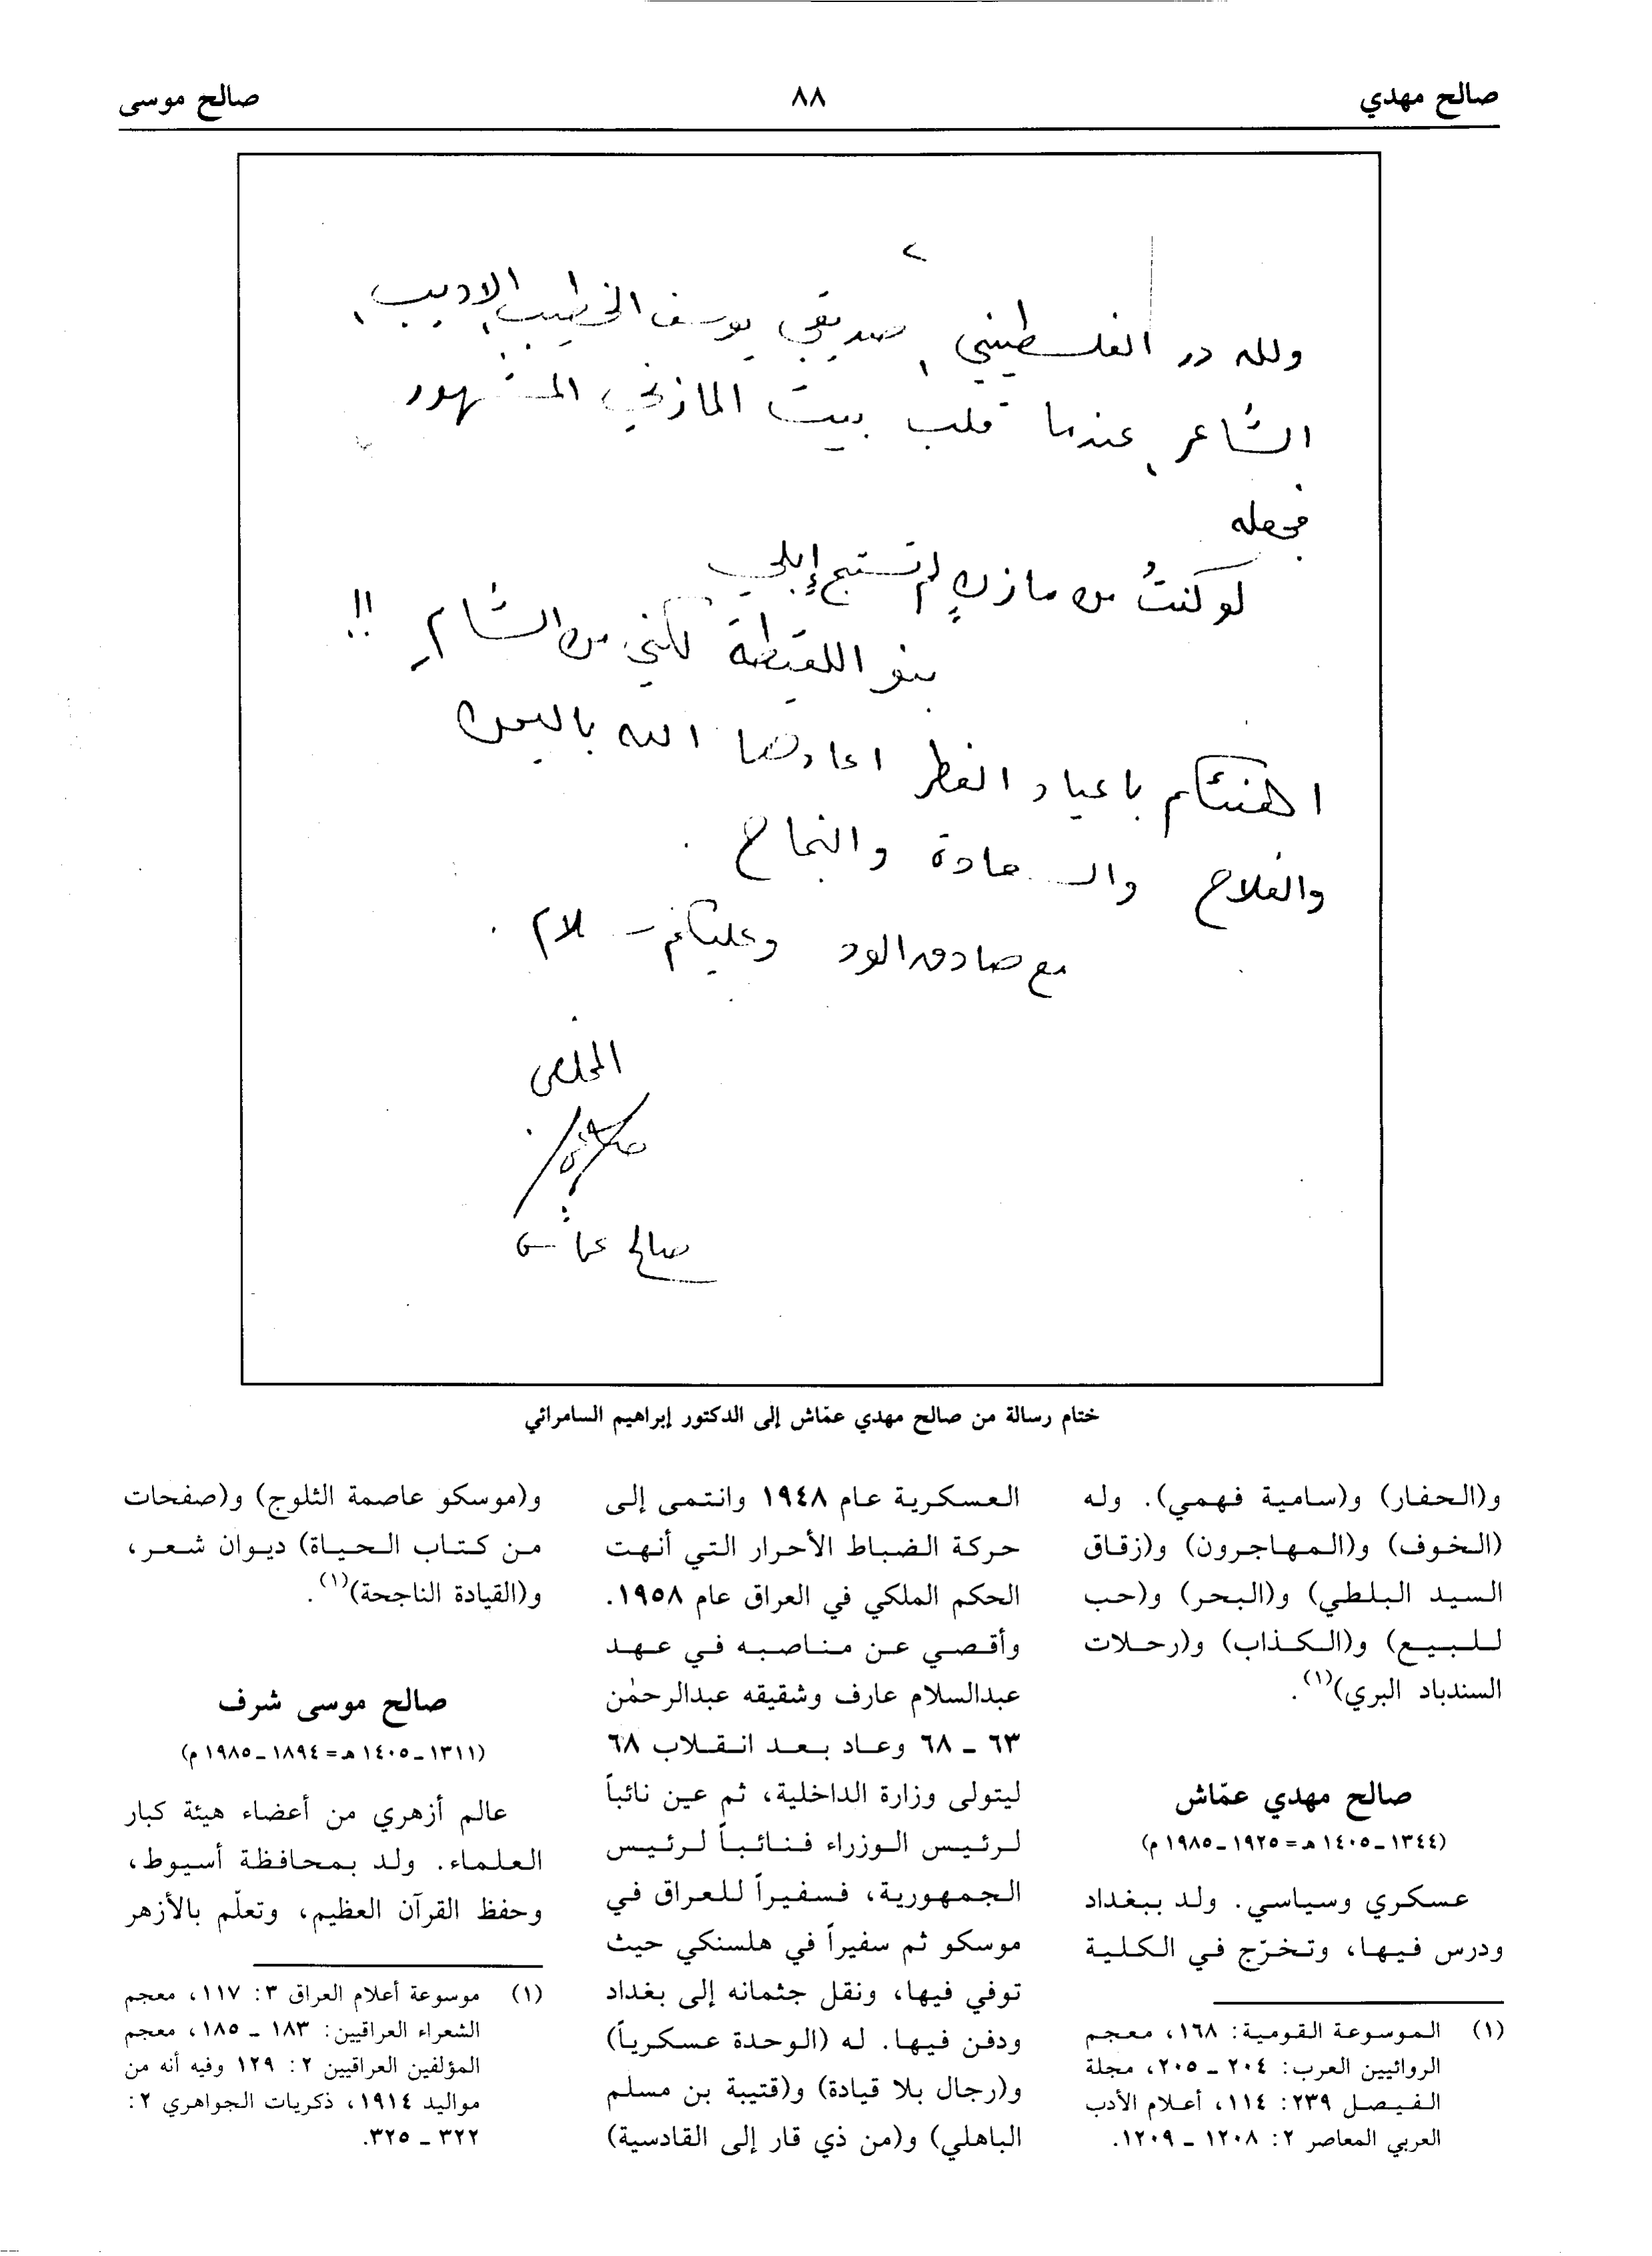 صالح مهدي
٨٨
صالح موسى
٢
ولله در الفلسطيني، صديقي يوسف الخطيب، الاديب،
الشاعر، عندما قلب بيت المازني المشهور
فجعله
لو كنتُ من مازنٍ لم تستبح إبلي
بنو اللقيطة لكني من الشامِ !!
اهنئكم باعياد الفطر اعادها الله باليمن
والفلاح والسعادة والنجاح .
مع صادق الود وعليكم سلام .
المخلص
صالح عماش
ختام رسالة من صالح مهدي عمّاش إلى الدكتور إبراهيم السامرائي
و(الحفار) و(سامية فهمي). وله
(الخوف) و(المهاجرون) و(زقاق
السيد البلطي) و(البحر) و(حب
للبيع) و(الكذاب) و(رحلات
السندباد البري)(١).
صالح مهدي عمّاش
(١٣٤٤ـ١٤٠٥ هـ = ١٩٢٥ـ١٩٨٥ م)
عسكري وسياسي. ولد ببغداد
ودرس فيها، وتخرّج في الكلية
(١) الموسوعة القومية: ١٦٨، معجم
الروائيين العرب: ٢٠٤ ـ ٢٠٥، مجلة
الفيصل ٢٣٩: ١١٤، أعلام الأدب
العربي المعاصر ٢: ١٢٠٨ ـ ١٢٠٩.
العسكرية عام ١٩٤٨ وانتمى إلى
حركة الضباط الأحرار التي أنهت
الحكم الملكي في العراق عام ١٩٥٨.
وأقصي عن مناصبه في عهد
عبدالسلام عارف وشقيقه عبدالرحمٰن
٦٣ ـ ٦٨ وعاد بعد انقلاب ٦٨
ليتولى وزارة الداخلية، ثم عين نائباً
لرئيس الوزراء فنائباً لرئيس
الجمهورية، فسفيراً للعراق في
موسكو ثم سفيراً في هلسنكي حيث
توفي فيها، ونقل جثمانه إلى بغداد
ودفن فيها. له (الوحدة عسكرياً)
و(رجال بلا قيادة) و(قتيبة بن مسلم
الباهلي) و(من ذي قار إلى القادسية)
و(موسكو عاصمة الثلوج) و(صفحات
من كتاب الحياة) ديوان شعر،
و(القيادة الناجحة)(١).
صالح موسى شرف
(١٣١١ـ١٤٠٥ هـ = ١٨٩٤ـ١٩٨٥ م)
عالم أزهري من أعضاء هيئة كبار
العلماء. ولد بمحافظة أسيوط،
وحفظ القرآن العظيم، وتعلّم بالأزهر
(١) موسوعة أعلام العراق ٣: ١١٧، معجم
الشعراء العراقيين: ١٨٣ ـ ١٨٥، معجم
المؤلفين العراقيين ٢: ١٢٩ وفيه أنه من
مواليد ١٩١٤، ذكريات الجواهري ٢:
٣٢٢ ـ ٣٢٥.